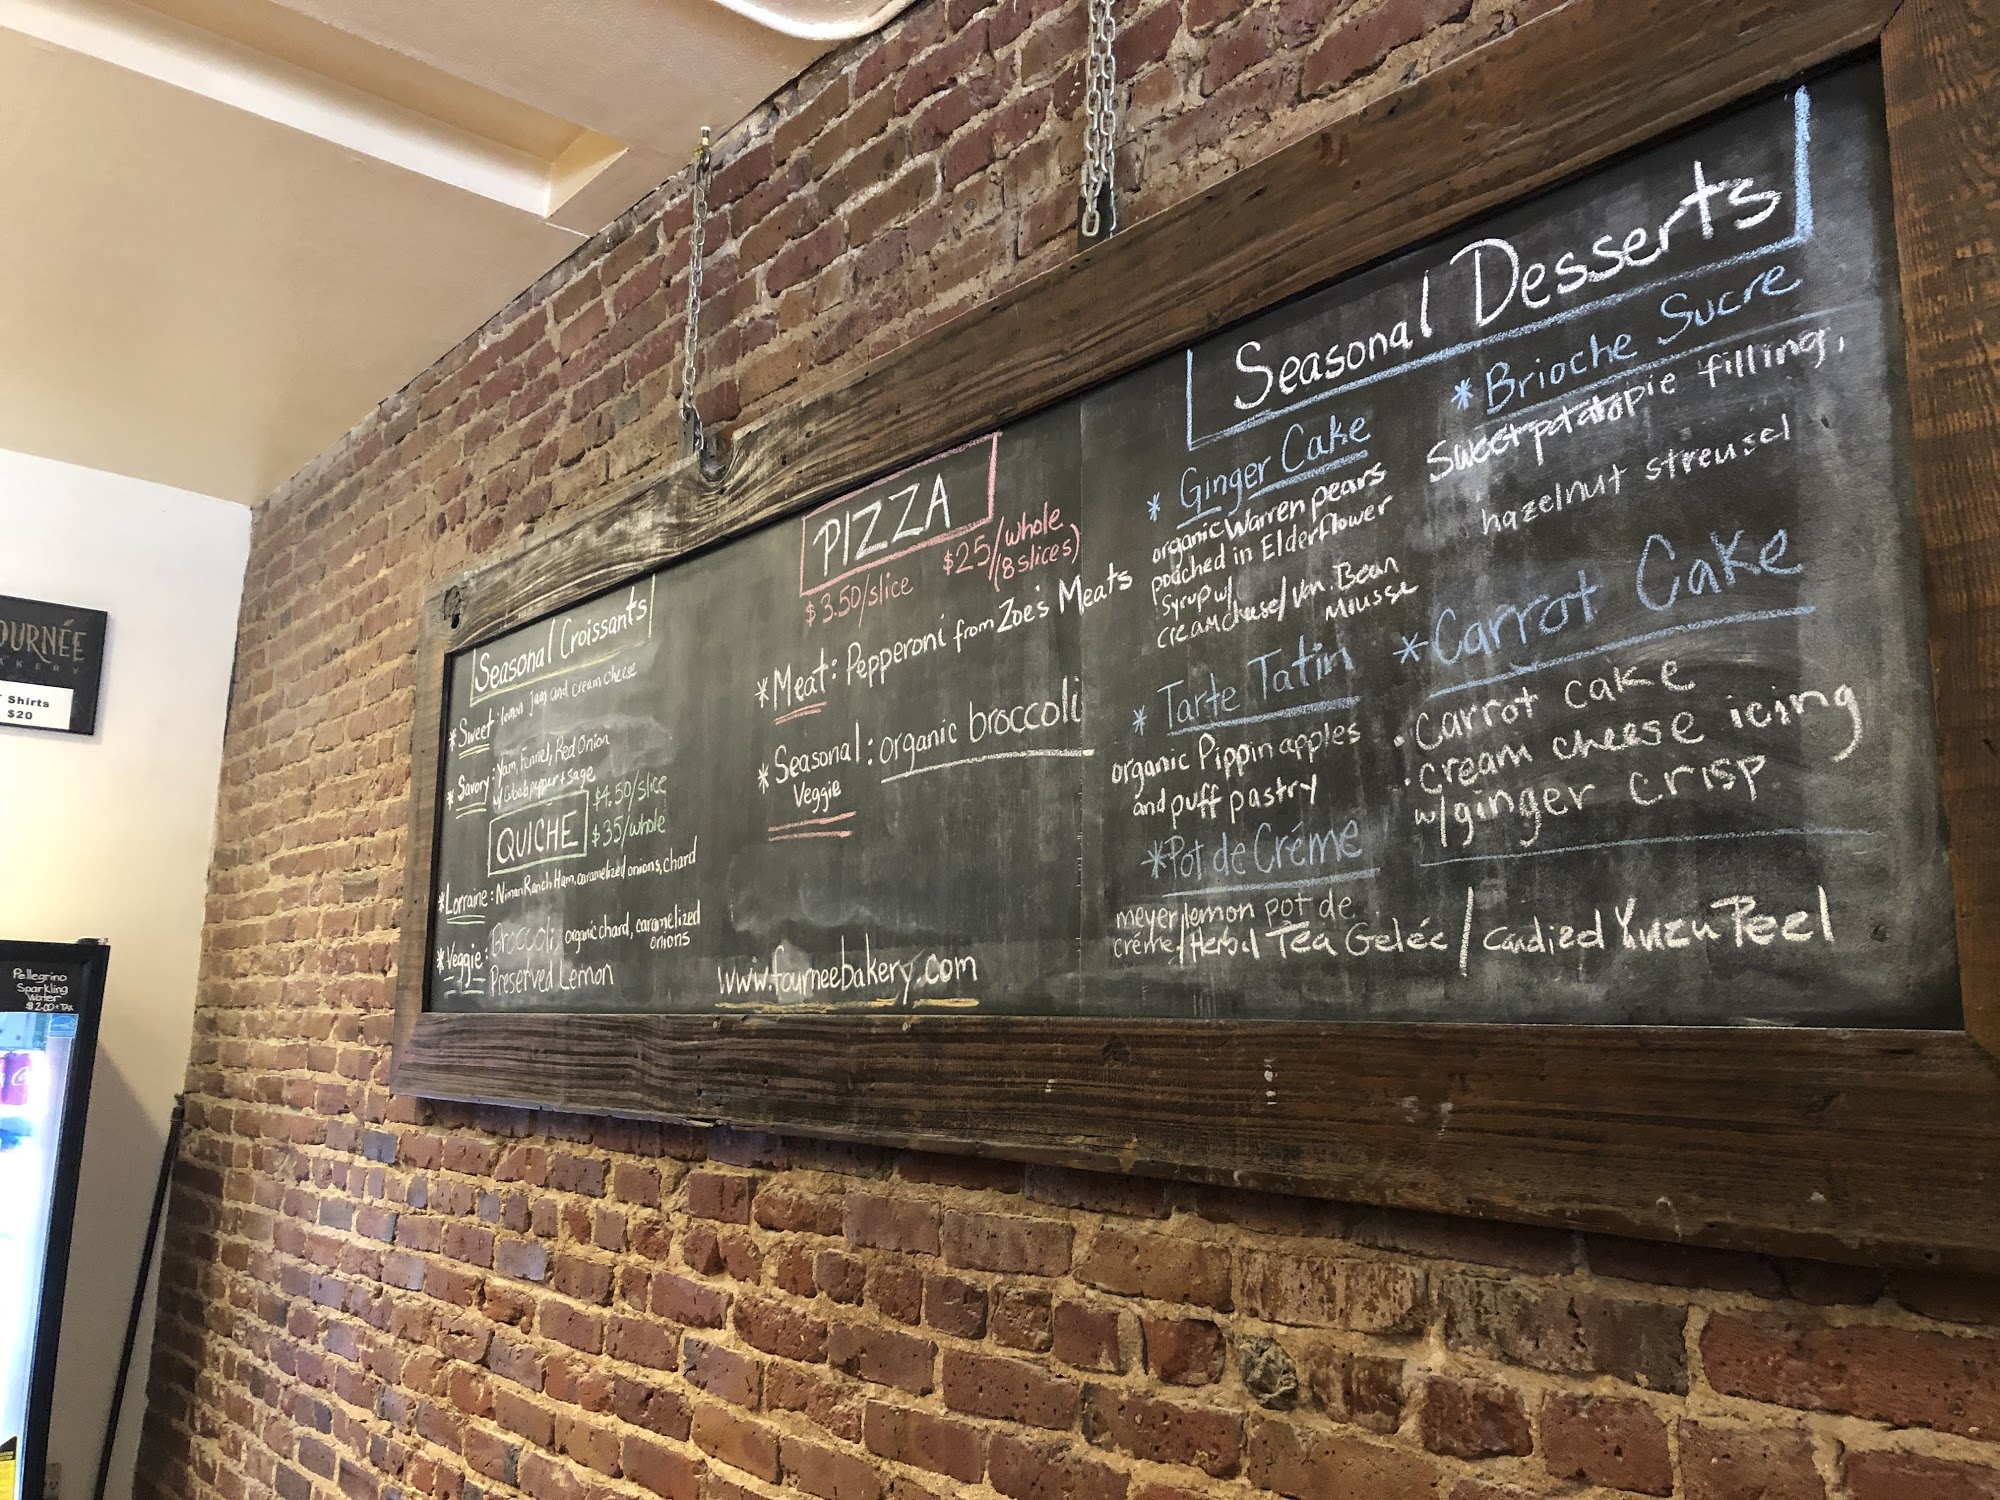 OURNÉE
AKERY
Shirts
$20
Pellegrino
Sparkling
Water
$2.00+TAX
Seasonal Croissants
*Sweet: lemon jam and cream cheese
*Savory: Yam, Funnel, Red Onion
w/ Cubeb pepper + sage
QUICHE
$4.50/slice
$35/whole
*Lorraine: Niman Ranch Ham, caramelized onions, chard
*Veggie: Broccoli, organic chard, caramelized
onions
Preserved Lemon
PIZZA
$3.50/slice
$25/whole
(8 slices)
*Meat: Pepperoni from Zoe's Meats
*Seasonal: organic broccoli
Veggie
www.fourneebakery.com
Seasonal Desserts
* Ginger Cake
organic Warren pears
poached in Elderflower
Syrup w/
creamcheese/Van. Bean
Mousse
* Tarte Tatin
organic Pippin apples
and puff pastry
*Pot de Créme
meyer lemon pot de
créme/Herbal Tea Geleé/Candied Yuzu Peel
* Brioche Sucre
Sweet potato pie filling,
hazelnut streusel
*Carrot Cake
• Carrot cake
• cream cheese icing
w/ginger crisp